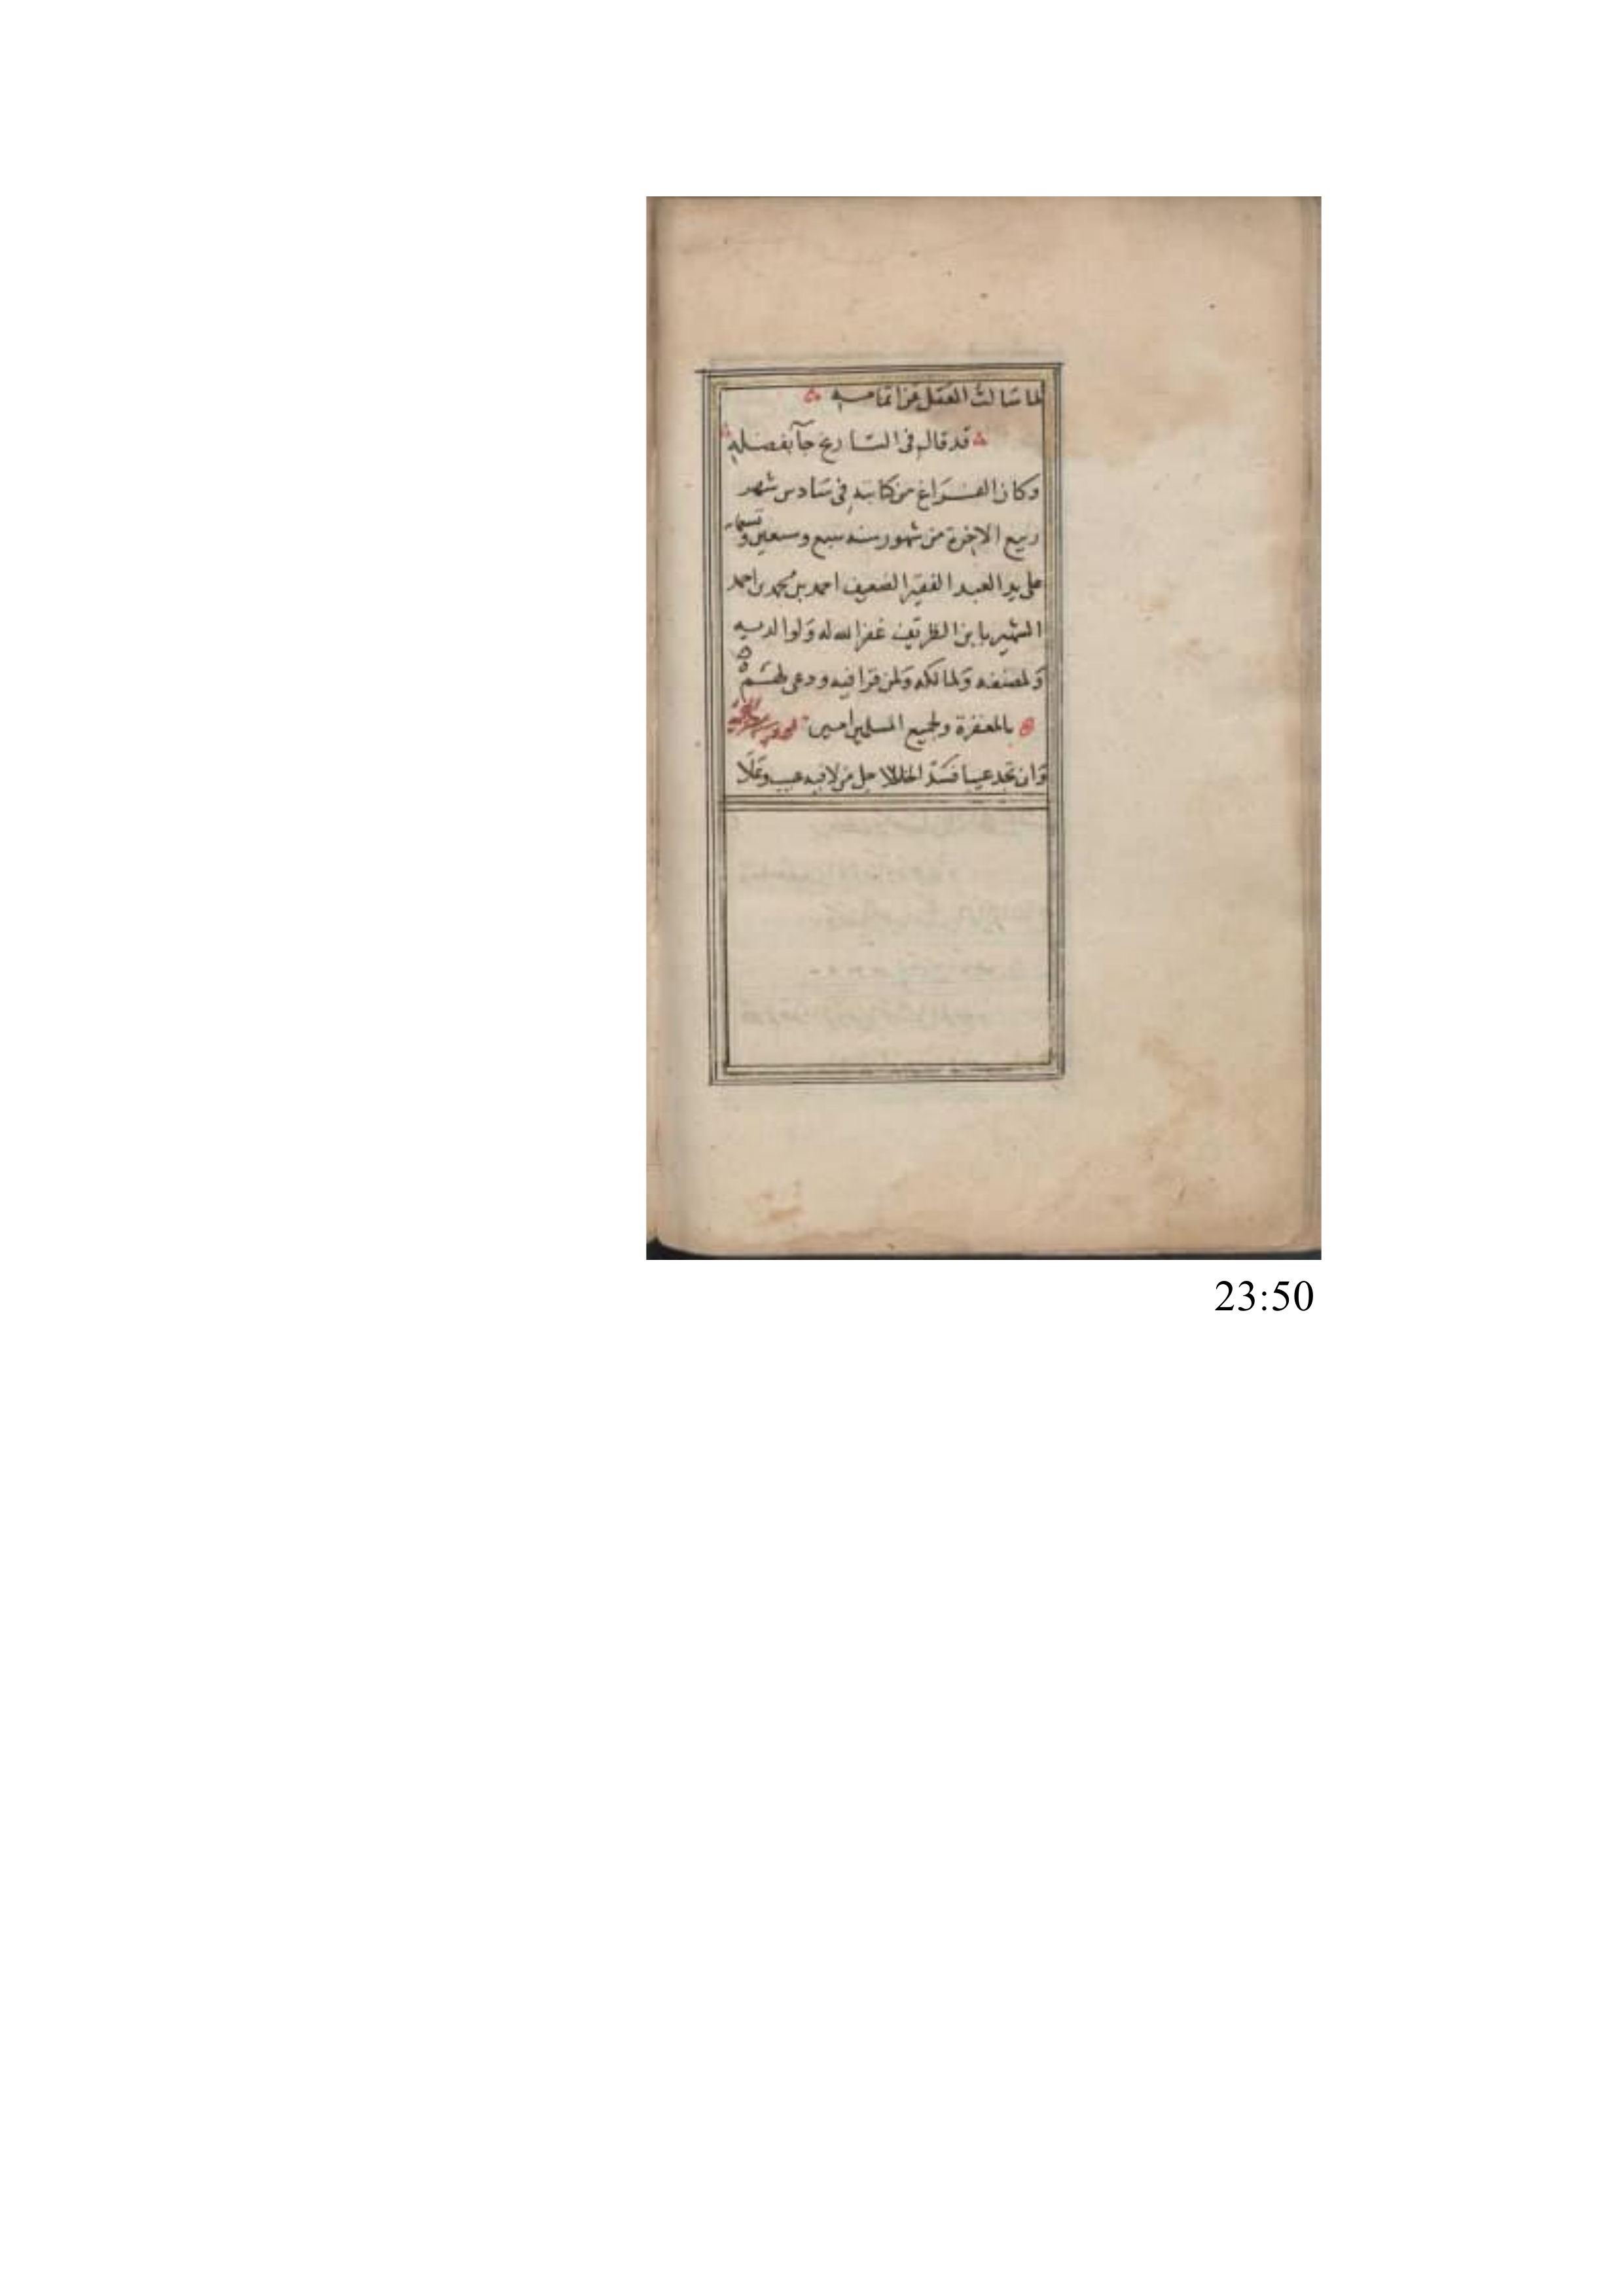 لما سالت العقل عن اتمامه
قد قال في التاريخ جآ بفضله
وكان الفراغ من كتابته في سادس شهر
ربيع الاخرة من شهور سنة سبع وسبعين وتسعماية
على يد العبد الفقير الضعيف احمد بن محمد بن احمد
الشهير بابن الظريف غفر الله له ولوالديه
ولمصنفه ولمالكه ولمن قرا فيه ودعى لهم
بالمغفرة ولجميع المسلمين امين
وان تجد عيبا فسد الخللا جل من لا فيه عيب وعلا
23:50